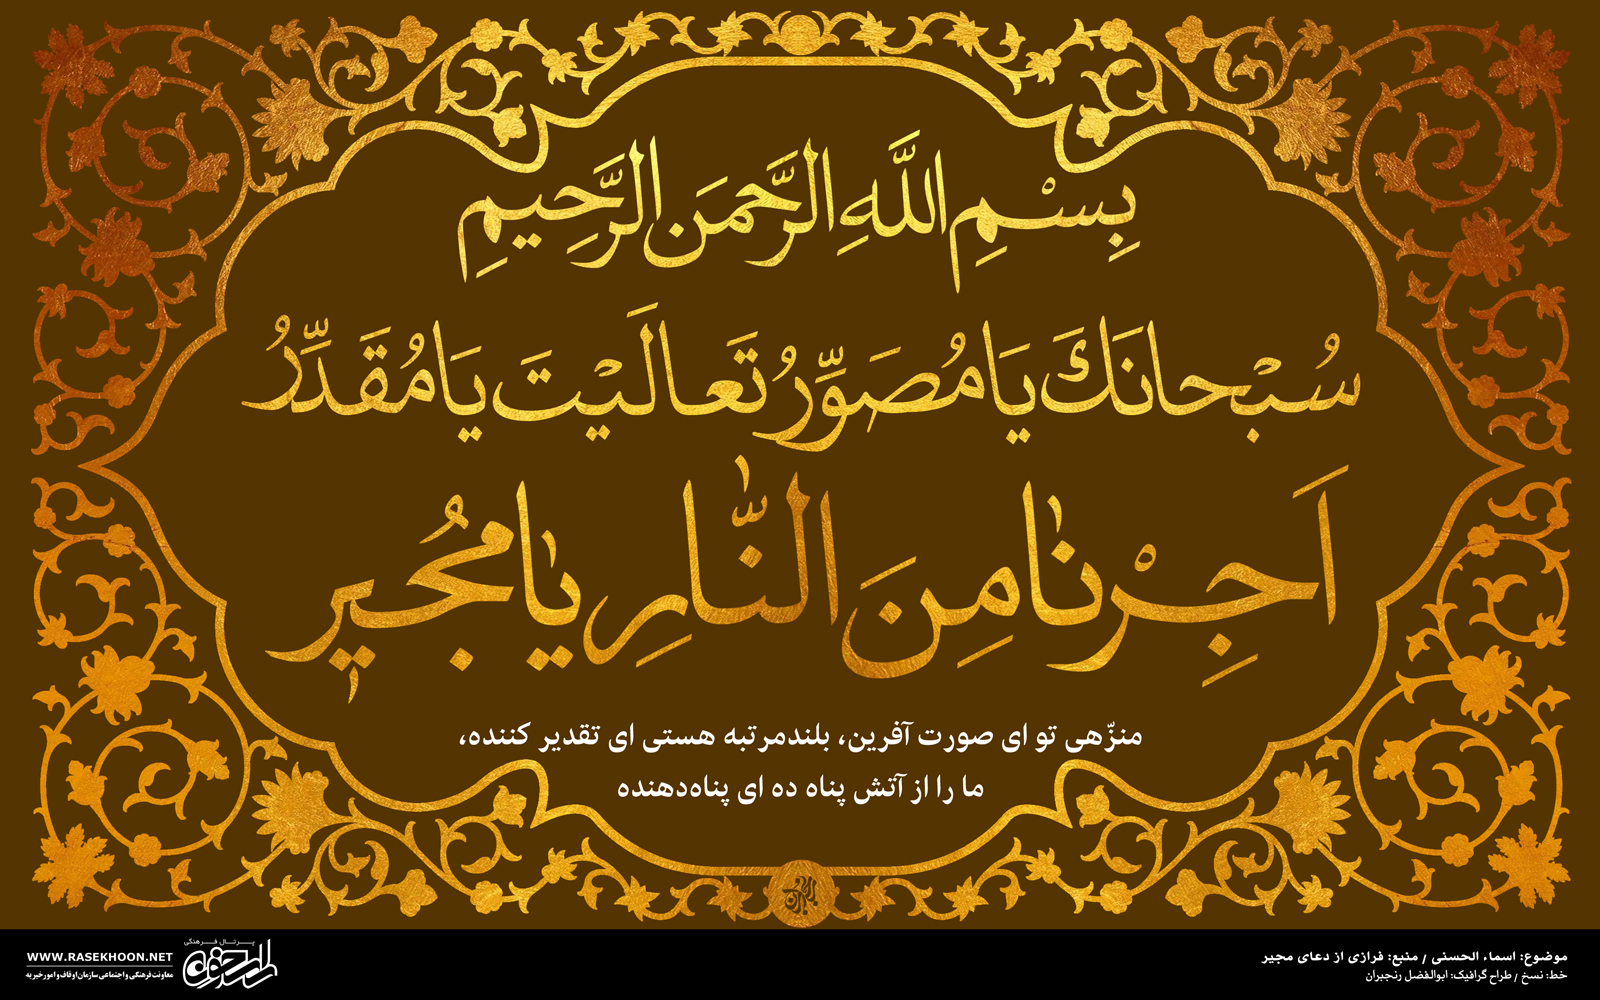 بِسْمِ اللَّهِ الرَّحْمَنِ الرَّحِیمِ
سُبْحانَكَ یَا مُصَوِّرُ تَعالَیْتَ یَا مُقَدِّرُ
اَجِرْنٰا مِنَ النّٰارِ یٰا مُجُیرِ
منزّهی تو ای صورت آفرین، بلندمرتبه هستی ای تقدیر کننده،
ما را از آتش پناه ده ای پناه‌دهنده
موضوع: اسماء الحسنی / منبع: فرازی از دعای مجیر
خط: نسخ / طراح گرافیک: ابوالفضل رنجبران
پرتال فرهنگی
راسخون
WWW.RASEKHOON.NET
معاونت فرهنگی و اجتماعی سازمان اوقاف و امور خیریه